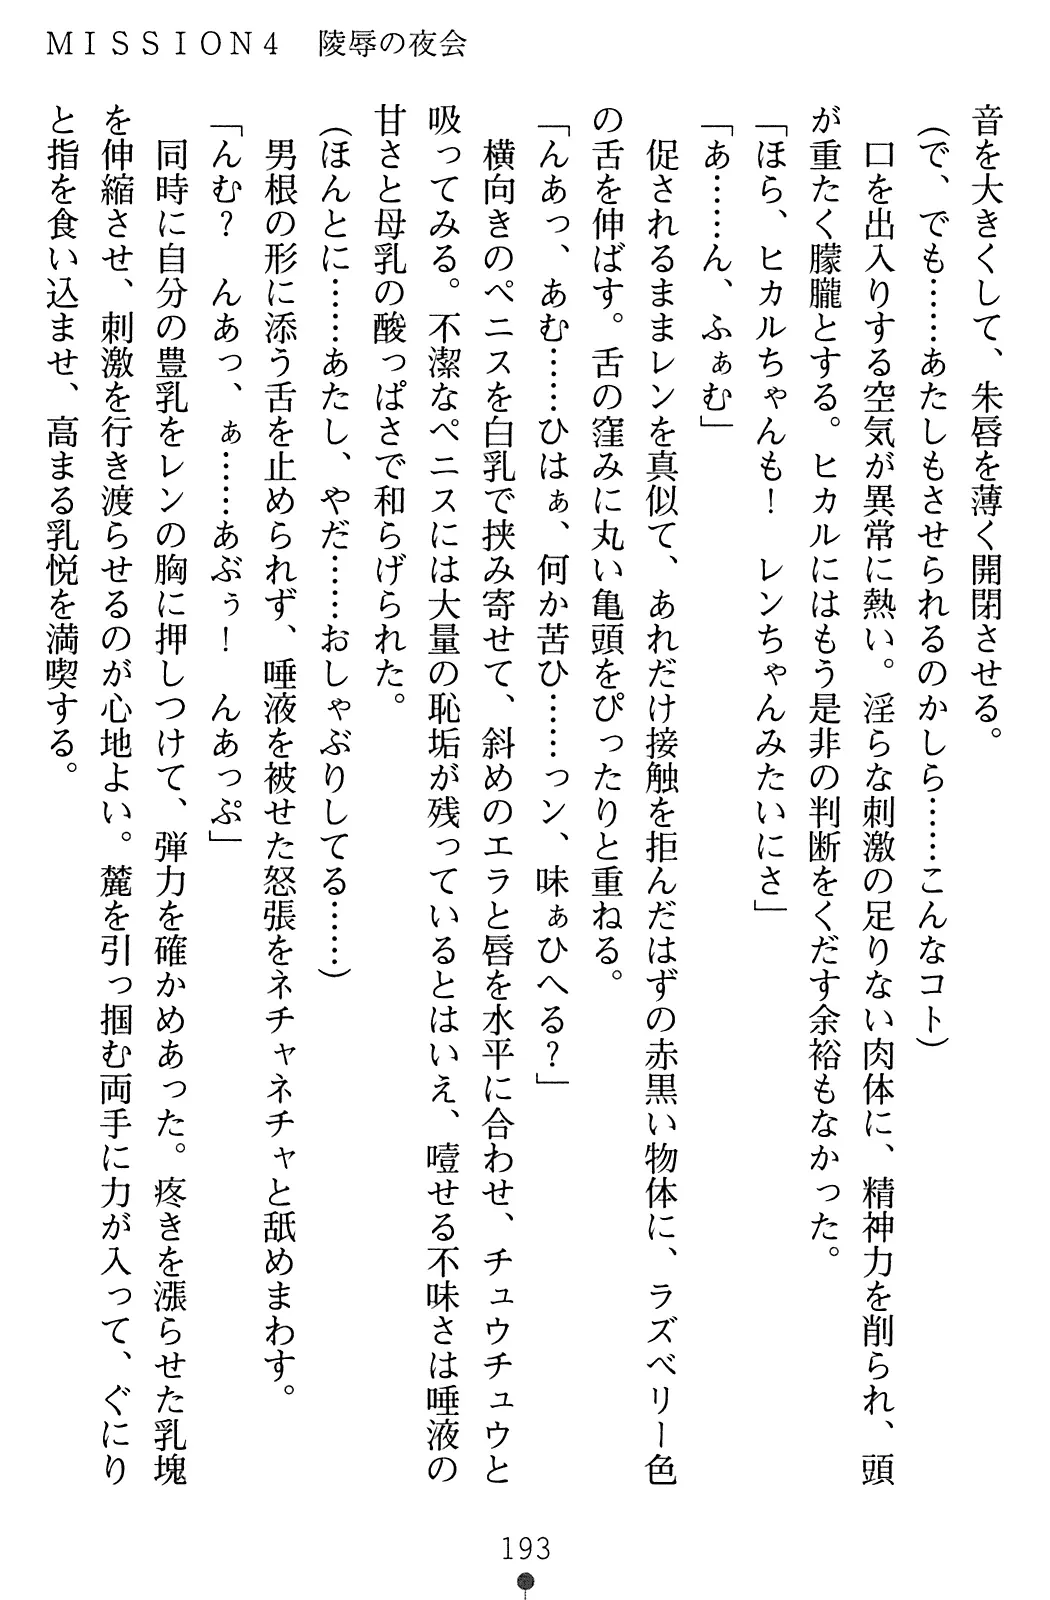 MISSION4 陵辱の夜会
音を大きくして、朱唇を薄く開閉させる。
(で、でも……あたしもさせられるのかしら……こんなコト)
口を出入りする空気が異常に熱い。淫らな刺激の足りない肉体に、精神力を削られ、頭
が重たく朦朧とする。ヒカルにはもう是非の判断をくだす余裕もなかった。
「ほら、ヒカルちゃんも！　レンちゃんみたいにさ」
「あ……ん、ふぁむ」
促されるままレンを真似て、あれだけ接触を拒んだはずの赤黒い物体に、ラズベリー色
の舌を伸ばす。舌の窪みに丸い亀頭をぴったりと重ねる。
「んあっ、あむ……ひはぁ、何か苦ひ……っン、味ぁひへる？」
横向きのペニスを白乳で挟み寄せて、斜めのエラと唇を水平に合わせ、チュウチュウと
吸ってみる。不潔なペニスには大量の恥垢が残っているとはいえ、噎せる不味さは唾液の
甘さと母乳の酸っぱさで和らげられた。
(ほんとに……あたし、やだ……おしゃぶりしてる……)
男根の形に添う舌を止められず、唾液を被せた怒張をネチャネチャと舐めまわす。
「んむ？　んあっ、ぁ……あぶぅ！　んあっぷ」
同時に自分の豊乳をレンの胸に押しつけて、弾力を確かめあった。疼きを漲らせた乳塊
を伸縮させ、刺激を行き渡らせるのが心地よい。麓を引っ掴む両手に力が入って、ぐにり
と指を食い込ませ、高まる乳悦を満喫する。
193